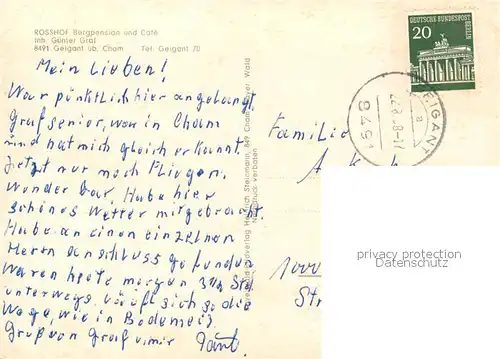 ROSSHOF Bergpension und Café
Inh. Günter Graf
8491 Geigant üb. Cham Tel. Geigant 70
Mein Lieben!
War pünktlich hier angelangt
Graf senior, war in Cham
und hat mich gleich erkannt
Jetzt nur noch Fliegen.
Wunder bar, Habe hier
schönes Wetter mitgebracht
Habe an einen einzelnen
Herrn anschluss gefunden
Waren heute morgen 3¼ Std
unterwegs. läuft sich so die
Wege, wie in Bodenmeis.
Gruß von Graf u. mir
Heinrich Steinmann, 849 Cham, Bayer. Wald
Nachdruck verboten
20
DEUTSCHE BUNDESPOST
BERLIN
GEIGANT
a
8491
Familie
A
1000
Str
privacy protection
Datenschutz